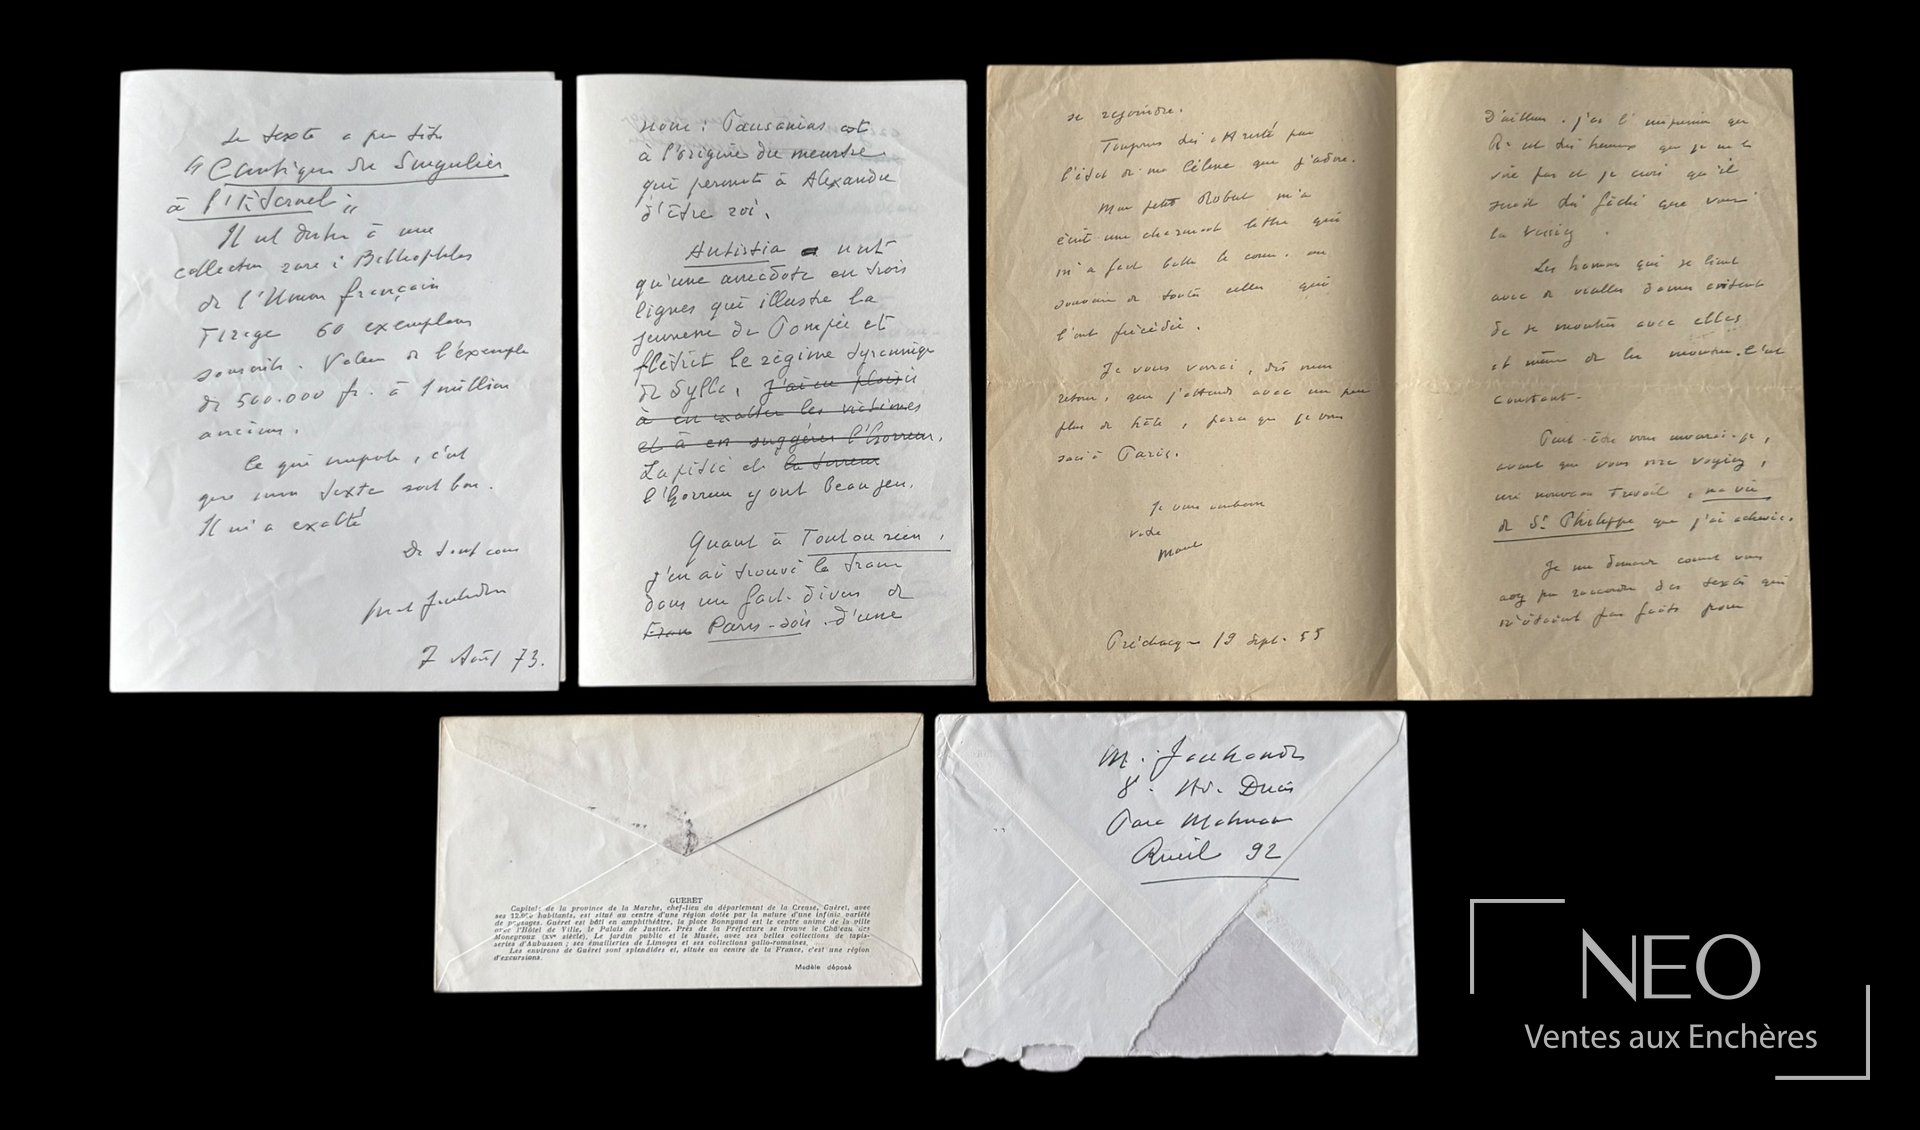 Le texte a pour titre
"Cantique du Singulier
à l'Éternel"
Il est destiné à une
collection rare : Bibliophiles
de l'Union française
Tirage 60 exemplaires
souscrits. Valeur de l'exemplaire
de 500.000 fr. à 1 million
anciens.
Ce qui importe, c'est
que mon texte soit bon.
Il m'a exalté
De tout cœur
Marcel Jouhandeau
7 Août 73.
noire : Pausanias est
à l'origine du meurtre
qui permet à Alexandre
d'être roi.
Antistia n'est
qu'une anecdote en trois
lignes qui illustre la
jeunesse de Pompée et
flétrit le régime tyrannique
de Sylla. J'ai eu plaisir
à en exalter les victimes
et à en suggérer l'horreur.
La pitié et la terreur
l'horreur y ont beau jeu.
Quant à Tout ou rien,
j'en ai trouvé la trame
dans un fait-divers de
Fran Paris-soir. d'une
se rejoindre.
Toujours très attristé par
l'état de ma Céline que j'adore.
Mon petit Robert m'a
écrit une charmante lettre qui
m'a fait battre le cœur, en
souvenir de toutes celles qui
l'ont précédée.
Je vous verrai, dès mon
retour, que j'attends avec un peu
plus de hâte, parce que je vous
sais à Paris.
Je vous embrasse
votre
Marcel
Préchacq 19 Sept. 55
D'ailleurs, j'ai l'impression que
R. est très heureux que je ne la
voie pas et je crois qu'il
serait très fâché que vous
la voyiez.
Les hommes qui se lient
avec de vieilles dames évitent
de se montrer avec elles
et même de les montrer. C'est
constant.
Peut-être vous enverrai-je,
avant que vous me voyiez,
un nouveau travail, ma vie
de St Philippe que j'ai achevée.
Je me demande comment vous
avez pu raccorder des textes qui
n'étaient pas faits pour
GUÉRET
Capitale de la province de la Marche, chef-lieu du département de la Creuse, Guéret, avec
ses habitants, est situé au centre d'une région dotée par la nature d'une infinie variété
de paysages. Guéret est bâti en amphithéâtre, la place Bonnyaud est le centre animé de la ville
avec l'Hôtel de Ville, le Palais de Justice. Près de la Préfecture se trouve le Château des
Moneyroux (XVe siècle). Le jardin public et le Musée, avec ses belles collections de tapis-
series d'Aubusson ; ses émailleries de Limoges et ses collections gallo-romaines.
Les environs de Guéret sont splendides et, située au centre de la France, c'est une région
d'excursions.
Modèle déposé
M. Jouhandeau
8. Av. Ducis
Parc Malmaison
Rueil 92
NEO
Ventes aux Enchères